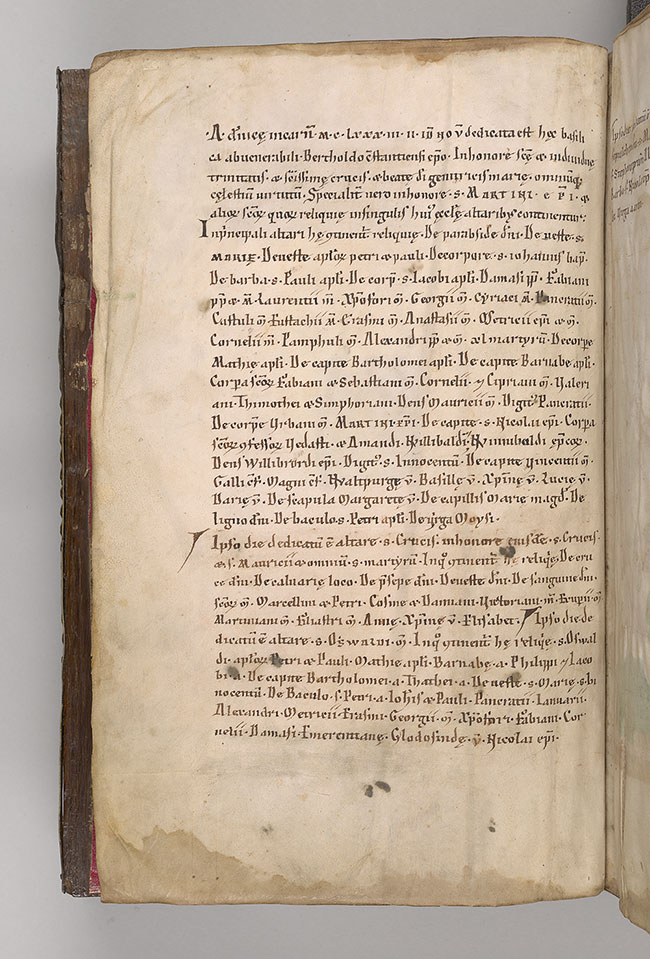 A dnicę incarn̄ m. c. lxxx. iii. ii. iii no v dedicata est hęc basili
ca a venerabili Bertholdo c̄stantiensi ep̄o. In honore scę & individuę
trinitatis. & scīssimę crucis. & beatę di genitricis marię. omniumq;
cęlestiū virtutū. Specialit̄ vero in honore .s. MARTINI. EP̄I. &
alioꝝ scōꝝ quoꝝ reliquię in singulis hui' ęcclę altarib; continentur.
In principali altari hę 9tinent̄ reliquię. De veste .s.
MARIĘ. De veste aplōꝝ petri & pauli. De corpore .s. iohannis bap̄.
De barba .s. Pauli apli. De corp̄ .s. Iacobi apli. Damasi pp̄. Fabiani
pp̄ & m̄. Laurentii m̄. Xpofori m̄. Georgii m̄. Cyriaci m̄. Pancratii m̄.
Castuli m̄. Eustachii m̄. Erasmi m̄. Anastasii m̄. Metricii ep̄i & m̄.
Cornelii m̄. Pamphuli m̄. Alexandri pp̄ & m̄. & al martyrū. De corpe
Mathię apli. De capite Bartholomei apli. De capite Barnabę apli.
Corpa scōꝝ Fabiani & Sebastiani m̄. Cornelii. 7 Cipriani m̄. Valeri
ani. Thimothei & Simphoriani. Dens Mauricii m̄. Digit' Pancratii.
De corpe Urbani m̄. MARTINI. EP̄I. De capite .s. Nicolai ep̄i. Corpa
scōꝝ 9fessoꝝ Vedasti. & Amandi. Willibaldi. Wnnibaldi ep̄coꝝ.
Dens Willibrordi ep̄i. Digit' .s. Innocentū. De capite Vincentii m̄.
Galli cf̄. Magni cf̄. Waltpurgę v̄. Basillę v̄. Xpinę v̄. Lucię v̄.
Darię v̄. De scapula Margaretę v̄. De capillis Marię magd̄. De
ligno dn̄i. De baculo .s. Petri apli. De virga Moysi.
Ipso die dedicatū ē altare .s. Crucis. in honore eiusdē .s. Crucis.
& .s. Mauricii & omniū .s. martyrū. In q° 9tinent̄ hę reliqię. De cru
ce dn̄i. De calvarię loco. De p̄sepe dn̄i. De veste dn̄i. De sanguine dn̄i.
scōꝝ m̄. Marcellini & Petri. Cosmę & Damiani. Victoriani m̄.
Martiniani m̄. m̄. Annę. Xpinę v̄. Elisabet. Ipso die de
dicatū ē altare .s. Oswaldi m̄. In q° 9tinent̄ hę reliqię .s. Oswal
di. aplōꝝ Petri & Pauli. Mathię apli. Barnabę. a. Philippi 7 Iaco
bi. a. De capite Bartholomei. a. Thathei. a. De veste .s. Marię .s. In
nocentū. De Baculo .s. Petri. a. Iohis & Pauli. Pancratii. Ianuarii.
Alexandri. Metricii. Erasmi. Georgii m̄. Xpofori. Fabiani. Cor
nelii. Damasi. Emerentianę. Glodosindę v̄. Nicolai ep̄i.